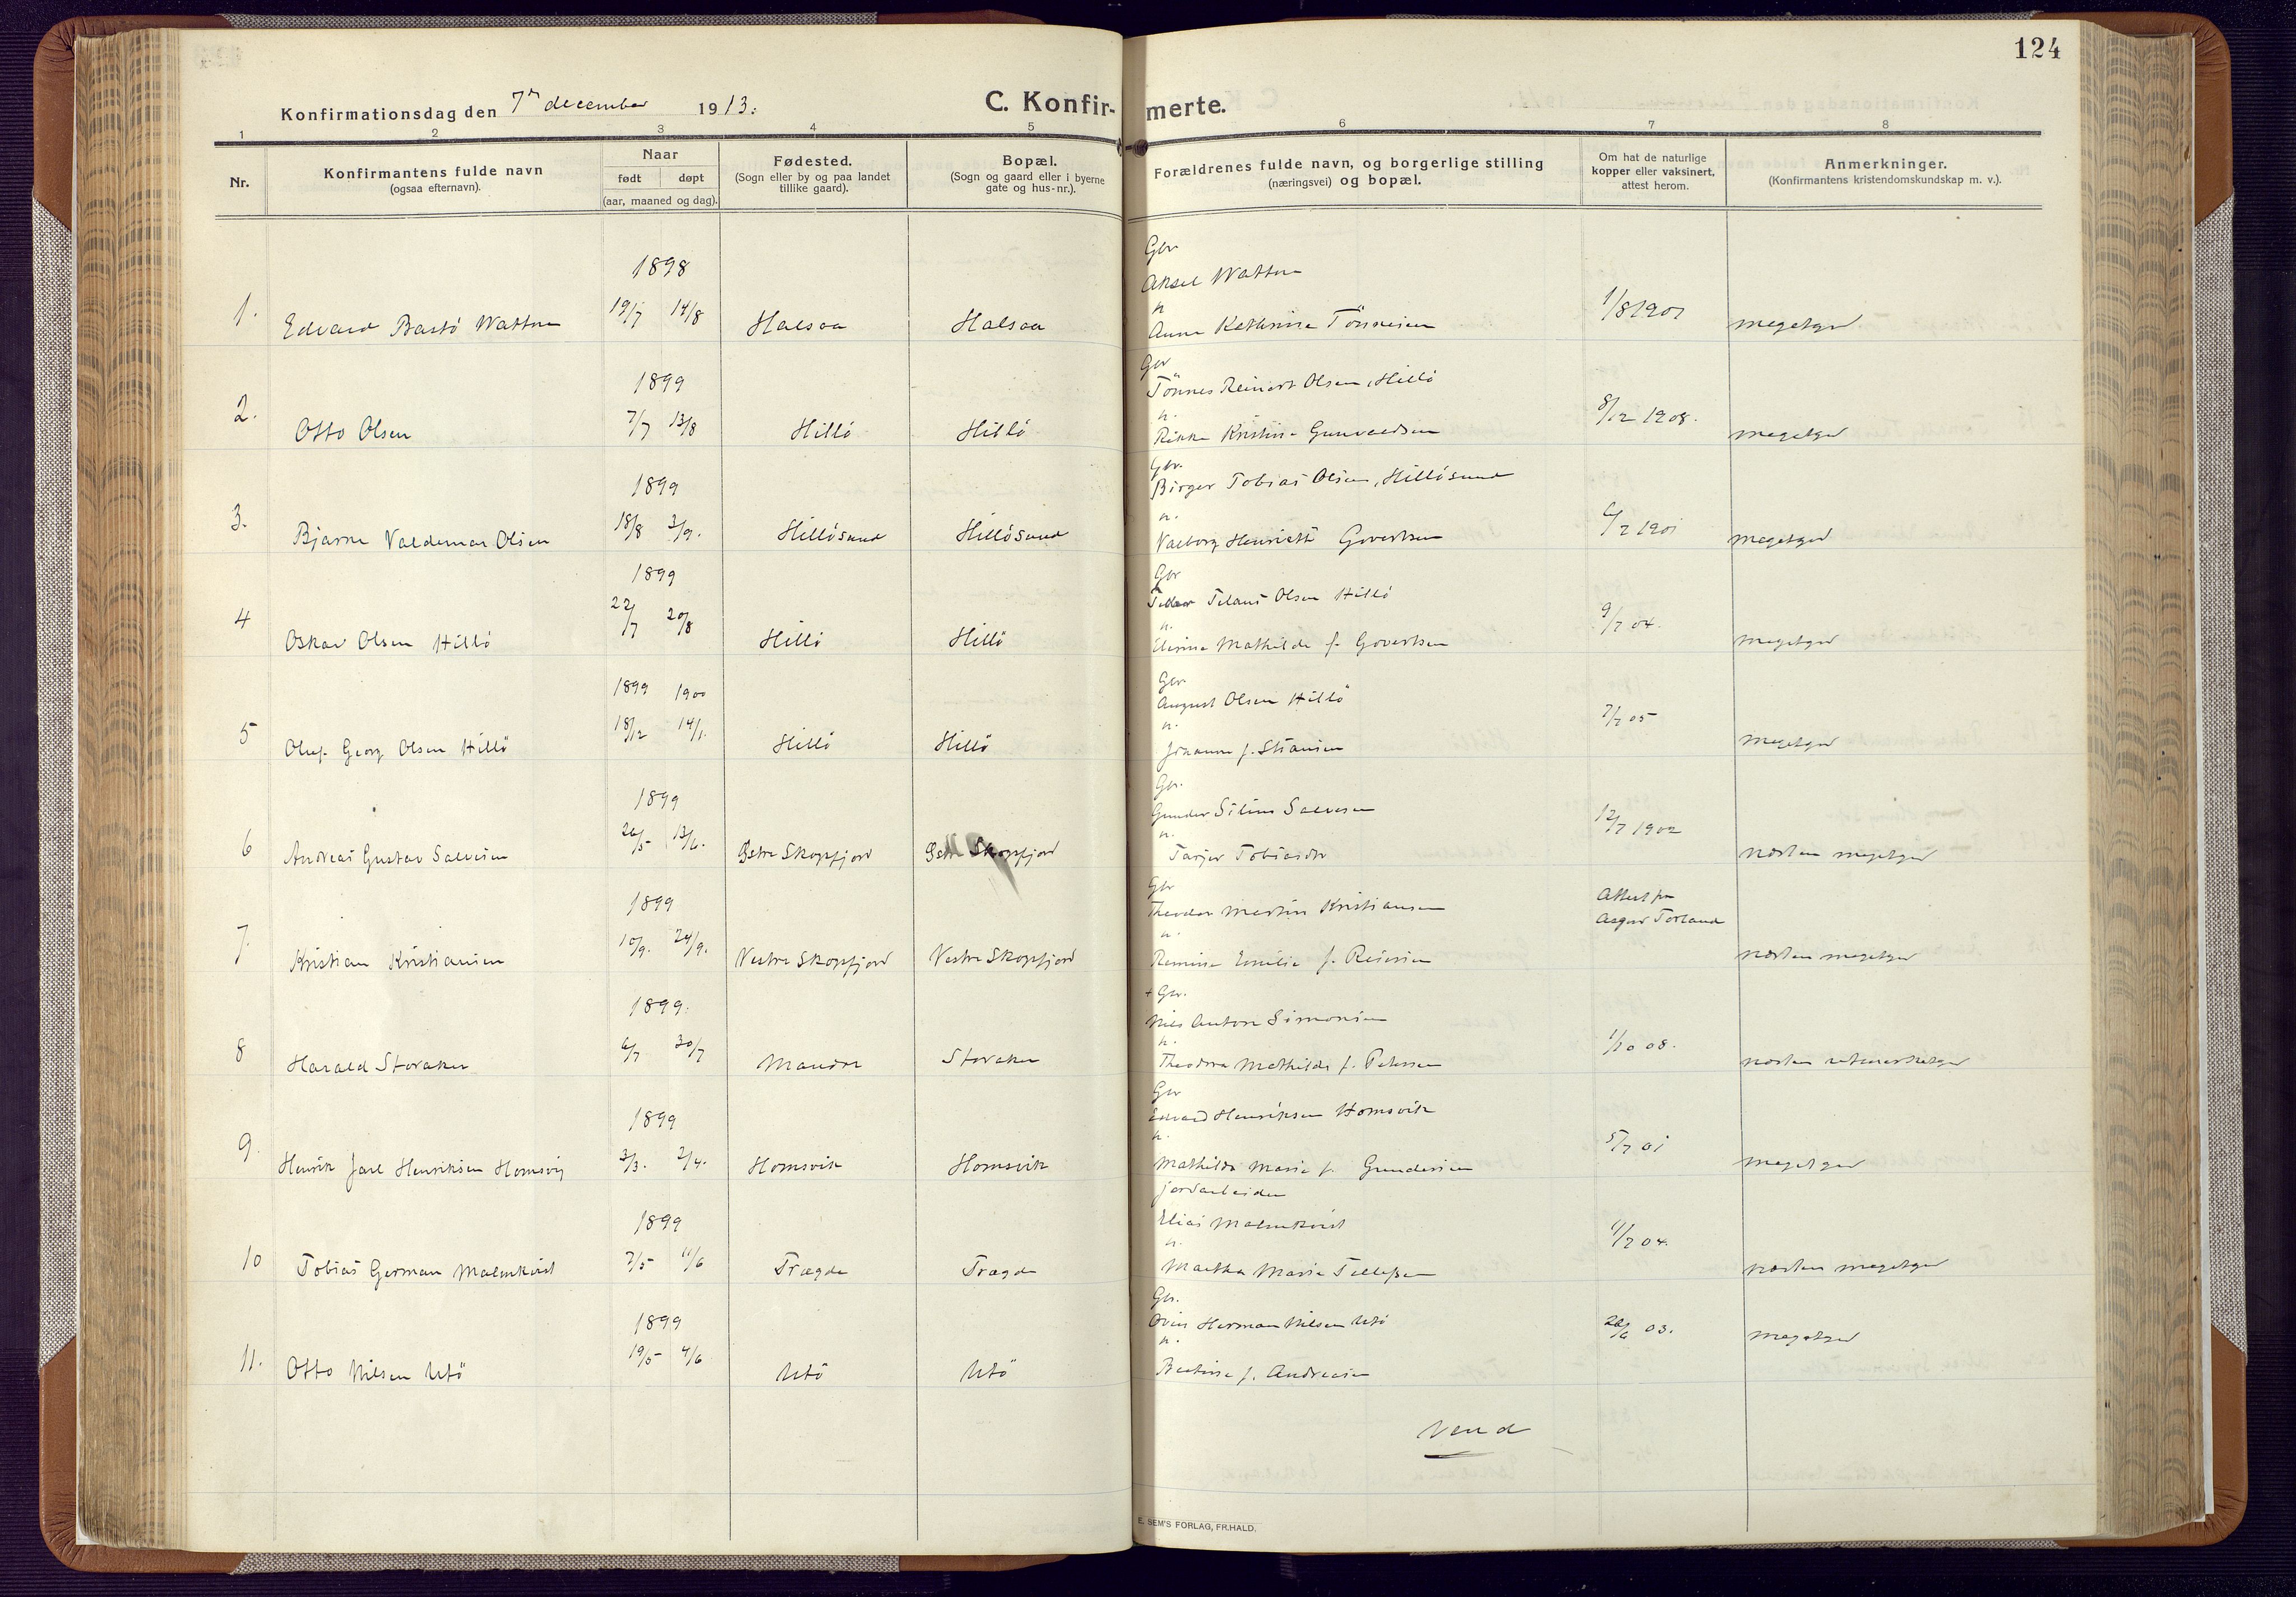 124
Konfirmationsdag den 7de december 1913.
C. Konfir-merte.
1 2 3 4 5 6 7 8
Nr.
Konfirmantens fulde navn
(ogsaa efternavn).
Naar
født døpt
(aar, maaned og dag).
Fødested.
(Sogn eller by og paa landet
tillike gaard).
Bopæl.
(Sogn og gaard eller i byerne
gate og hus-nr.).
Forældrenes fulde navn, og borgerlige stilling
(næringsvei) og bopæl.
Om hat de naturlige
kopper eller vaksinert,
attest herom.
Anmerkninger.
(Konfirmantens kristendomskundskap m. v.).
1898
Gbr
Aksel Watne
1. Edvard Bastö Watne 19/7 14/8 Halsaa Halsaa
Anne Kathrine Tönnesen 1/8 1901 megetgod
1899
Gbr
Tönnes Reinert Olsen, Hillö
2. Otto Olsen 7/7 13/8 Hillö Hillö
Rikke Kristine Gunvaldsen 8/12 1908. megetgod
1899
Gbr.
Birger Tobias Olsen, Hillösund
3. Bjarne Valdemar Olsen 18/8 3/9. Hillösund Hillösund
Valborg Henriette Govertsen 6/7 1901 megetgod
1899
Gbr
Olsen Hillö
4 Oskar Olsen Hillö 22/7 20/8 Hillö Hillö
Elisine Mathilde f. Govertsen 9/7 04. megetgod
1899 1900
Gbr
August Olsen Hillö
5 Oluf Georg Olsen Hillö 18/12 14/1. Hillö Hillö
Johanne f. Stiansen 7/7 05 megetgod
1899
Gbr.
Gunder Silius Salvesen
6 Andreas Gustav Salvesen 26/5 13/6. Östre Skogsfjord Östre Skogsfjord
Tarjer Tobiasdtr 12/7 1902 næsten megetgod
1899
Gbr
Theodor Martin Kristiansen
Attest fra
Asgur Torland
7. Kristian Kristiansen 10/9. 24/9. Vestre Skogsfjord Vestre Skogsfjord
Emilie f. Reiersen næsten megetgod
1899.
+ Gbr.
Nils Anton Simonsen
8 Harald Storaker 6/7 30/7 Mandal Storaker
Theodora Mathilde f. Petersen 1/10 08. næsten
1899
Gbr
Edvard Henriksen Homsvik
9. Henrik Jarl Henriksen Homsvig 3/3. 2/4. Homsvik Homsvik
Mathilde Marie f. Gundersen 5/7 01 megetgod
jordarbeider
1899
Elias Malmkvist
10 Tobias German Malmkvist 7/5 11/6 Trægde Trægde
Martha Marie Tellefsen 11/7 04. næsten megetgod
1899
Gbr.
Herman Nilsen Utö
11. Otto Nilsen Utö 19/5 4/6 Utö Utö
f. Andreasen 26/6 03. megetgod
Vend
E. SEM'S FORLAG, FR.HALD.